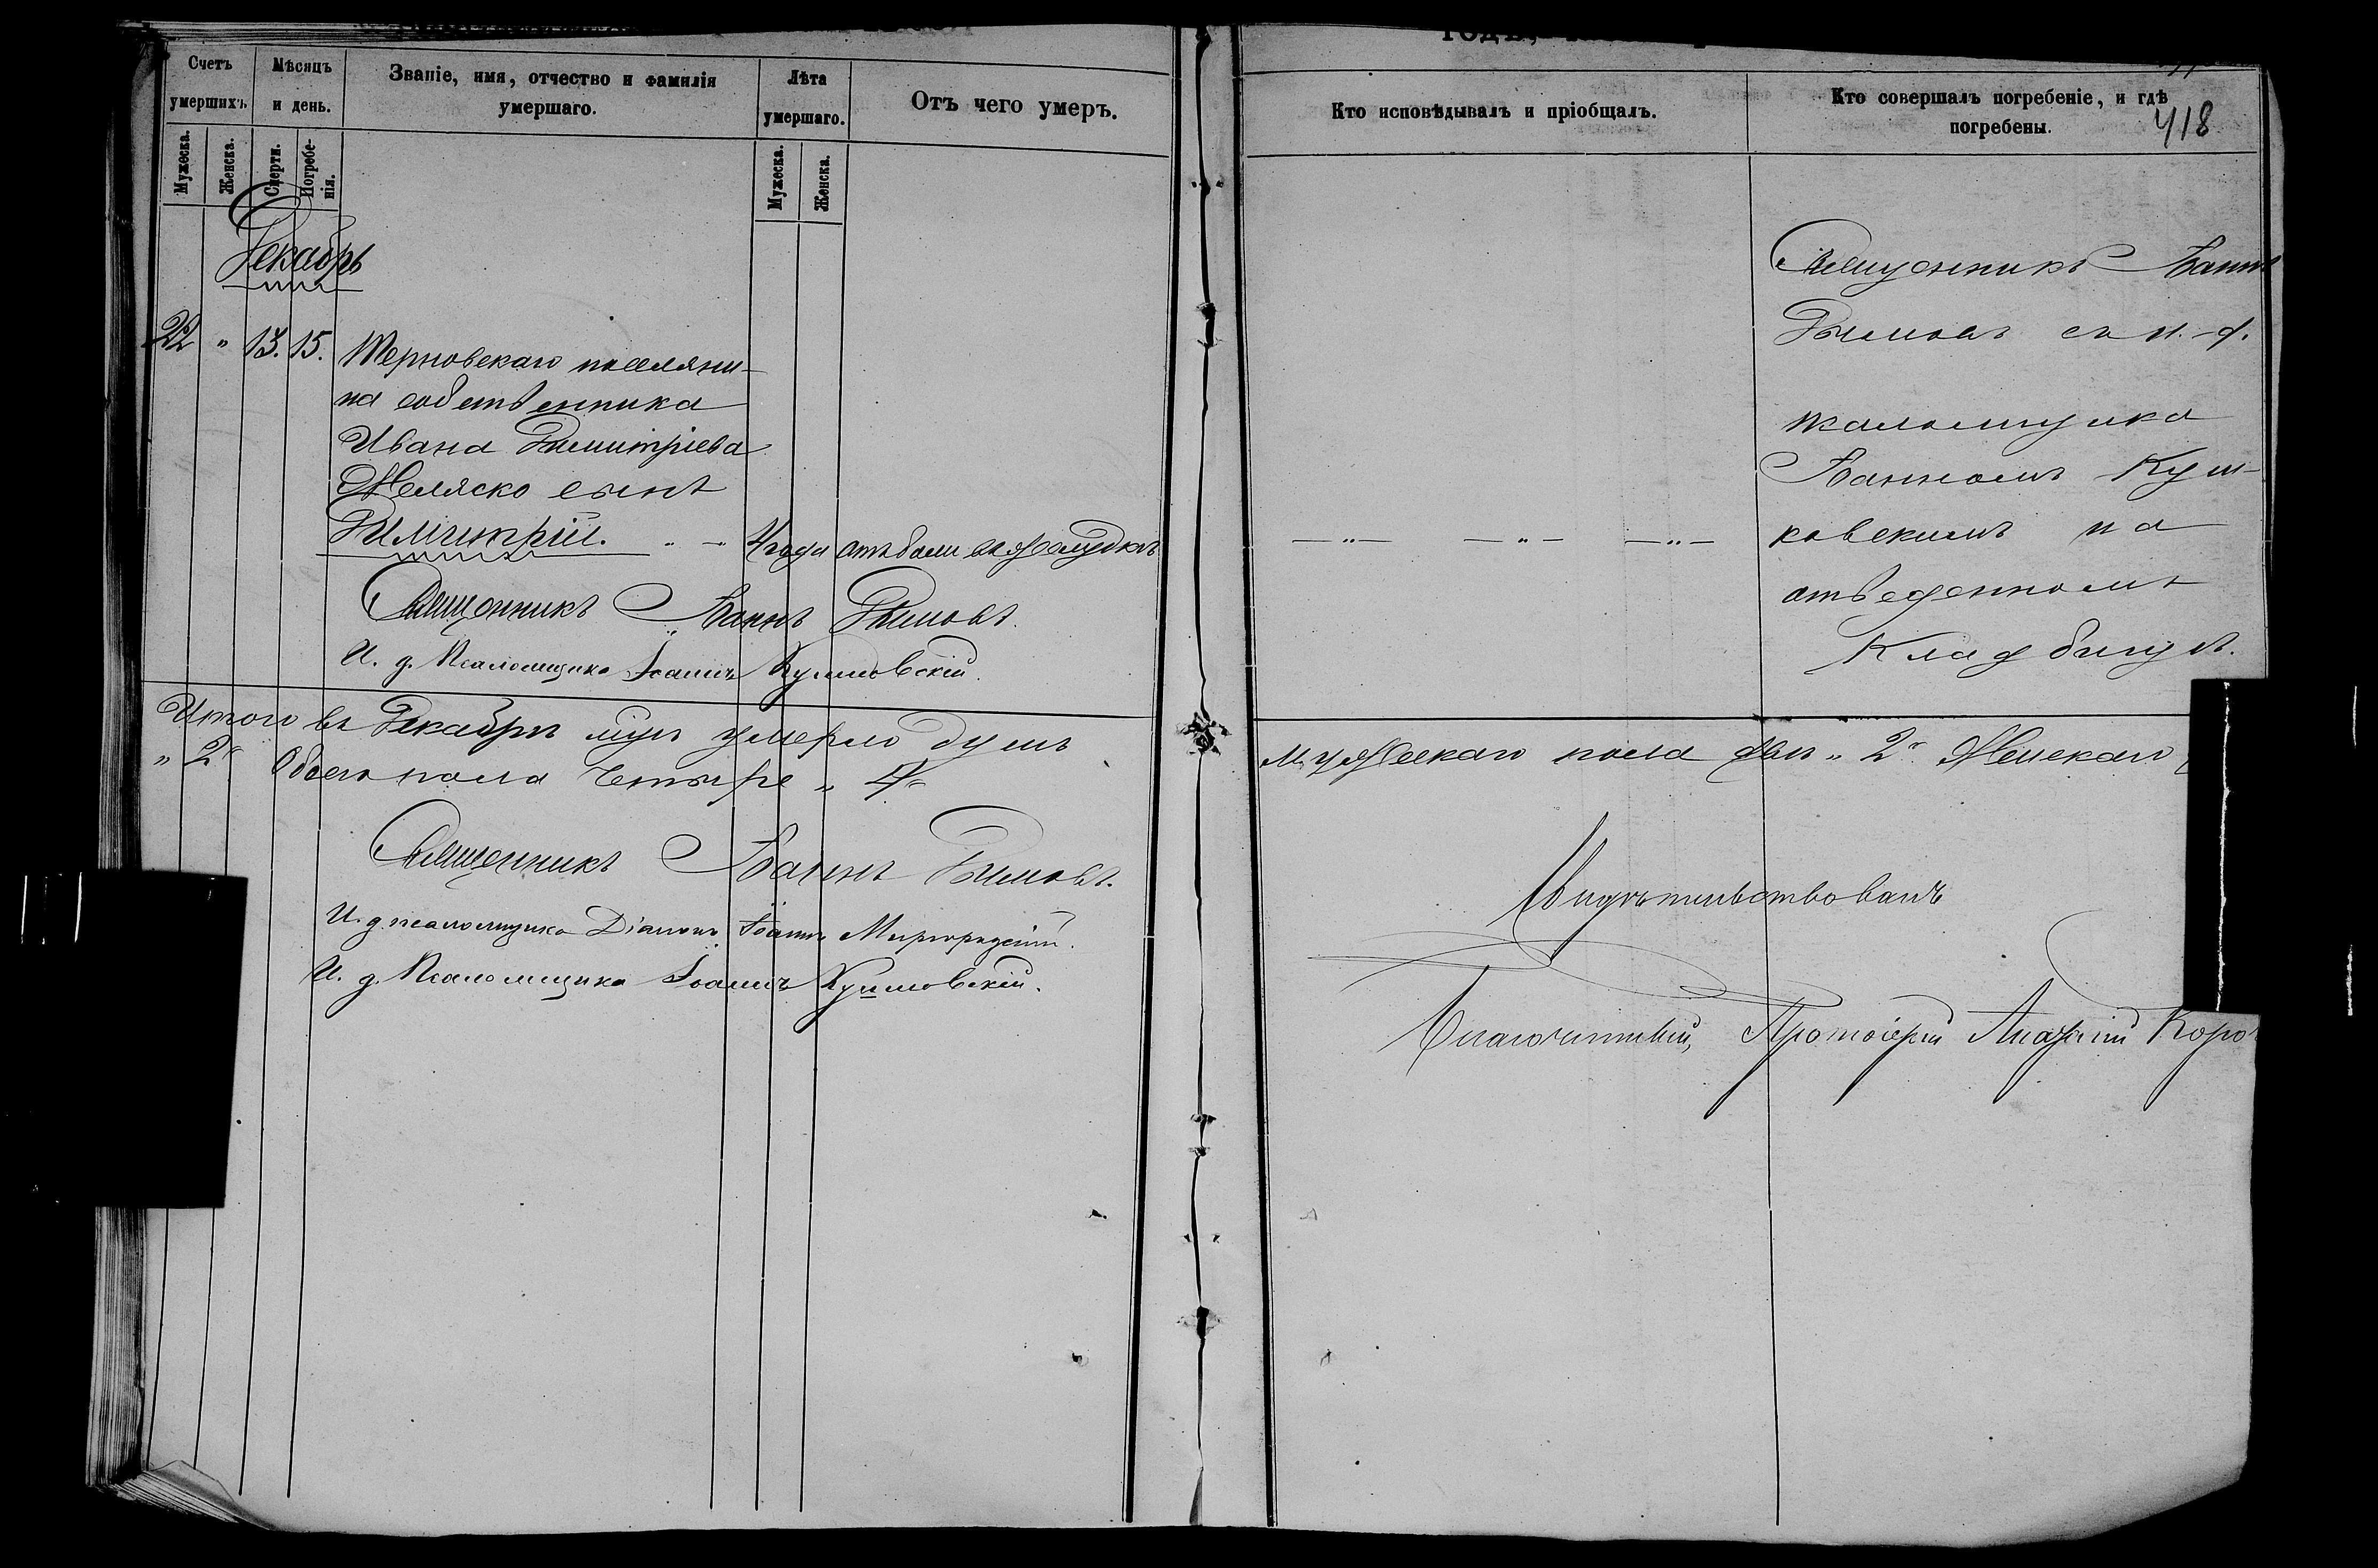 Счетъ умершихъ.
Мѣсяцъ и день.
Званіе, имя, отчество и фамилія умершаго.
Лѣта умершаго.
Отъ чего умеръ.
Мужеска.
Женска.
Смерти.
Погребенія.
Мужеска.
Женска.
Декабрь
22 " 13. 15. Терновскаго поселяни-
на собственника
Ивана Димитріева
Желяско сынъ
Димитрій. 4 года отъ боли въ желудкѣ
Священникъ Іоаннъ Димовъ.
И. д. Псаломщика Іоаннъ
Итого въ Декабрѣ м-цѣ умерло душъ
" 2" Обоего пола четыре " 4"
Священникъ Іоаннъ Димовъ.
И. д. псаломщика Діаконъ Іоаннъ
И. д. Псаломщика Іоаннъ
Кто исповѣдывалъ и пріобщалъ.
Кто совершалъ погребеніе, и гдѣ погребены.
418
Священникъ Іоаннъ
Димовъ съ и. д.
псаломщика
Іоанномъ
на
отведенномъ
Кладбищѣ.
Мужескаго пола два " 2" Женскаго
Свидѣтельствовалъ
Благочинный, Протоіерей